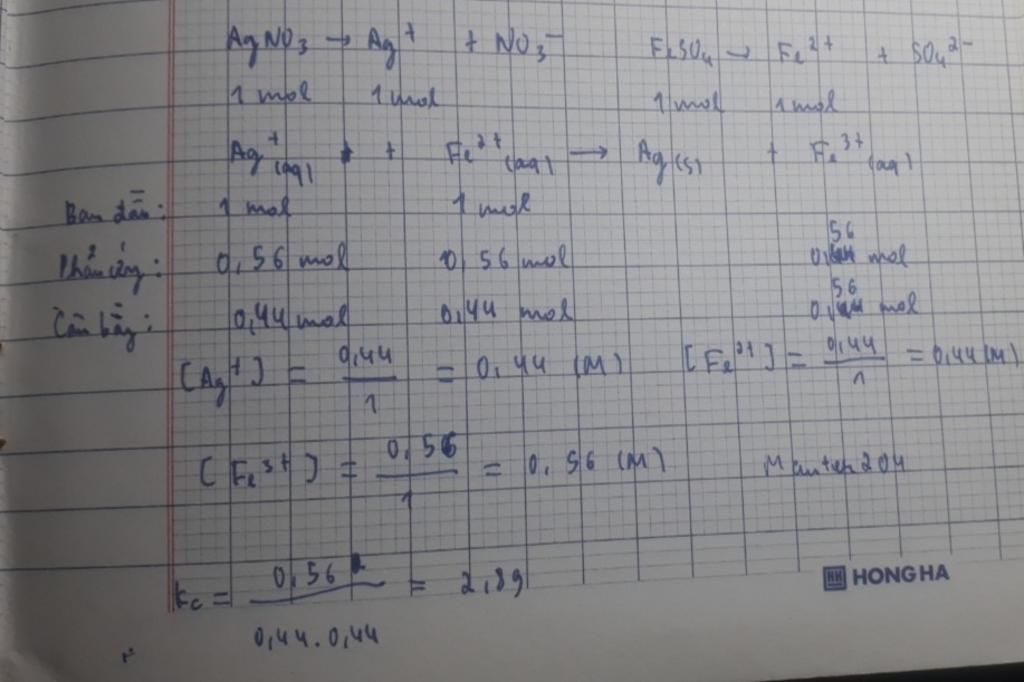 AgNO₃ → Ag⁺ + NO₃⁻ FeSO₄ → Fe²⁺ + SO₄²⁻
1 mol 1 mol 1 mol 1 mol
Ag⁺(aq) + Fe²⁺(aq) → Ag(s) + Fe³⁺(aq)
Ban đầu: 1 mol 1 mol
Phản ứng: 0,56 mol 0,56 mol 0,56 mol
Cân bằng: 0,44 mol 0,44 mol 0,56 mol
[Ag⁺] = 0,44/1 = 0,44 (M) [Fe²⁺] = 0,44/1 = 0,44 (M)
[Fe³⁺] = 0,56/1 = 0,56 (M)
Kc = 0,56/0,44.0,44 = 2,89
HONG HA